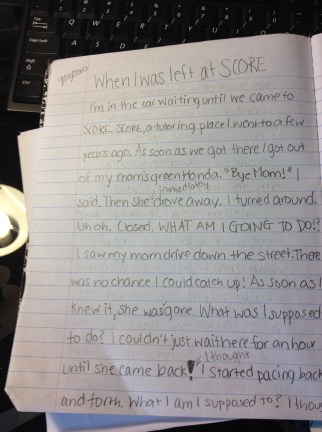 When I was left at SCORE
I'm in the car waiting until we came to
SCORE. SCORE, a tutoring place I went to a few
years ago. As soon as we got there I got out
of my mom's green Honda. "Bye Mom!" I
immediately
said. Then she drove away. I turned around.
Uh oh. Closed. WHAT AM I GOING TO DO!?
I saw my mom drive down the street. There
was no chance I could catch up! As soon as I
knew it, she was gone. What was I supposed
to do? I couldn't just wait here for an hour
I thought
until she came back! I started pacing back
and forth. What I am I supposed to? I thou